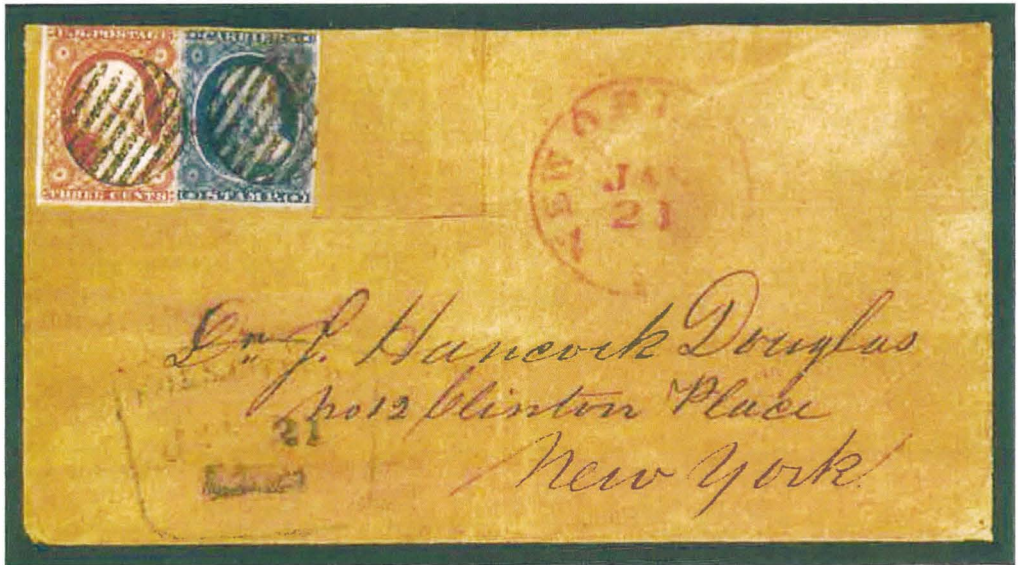 U.S. POSTAGE
THREE CENTS
CARRIERS
STAMP
NEW YORK
JAN
21
Dr. J. Hancock Douglas
No 12 Clinton Place
New York
21